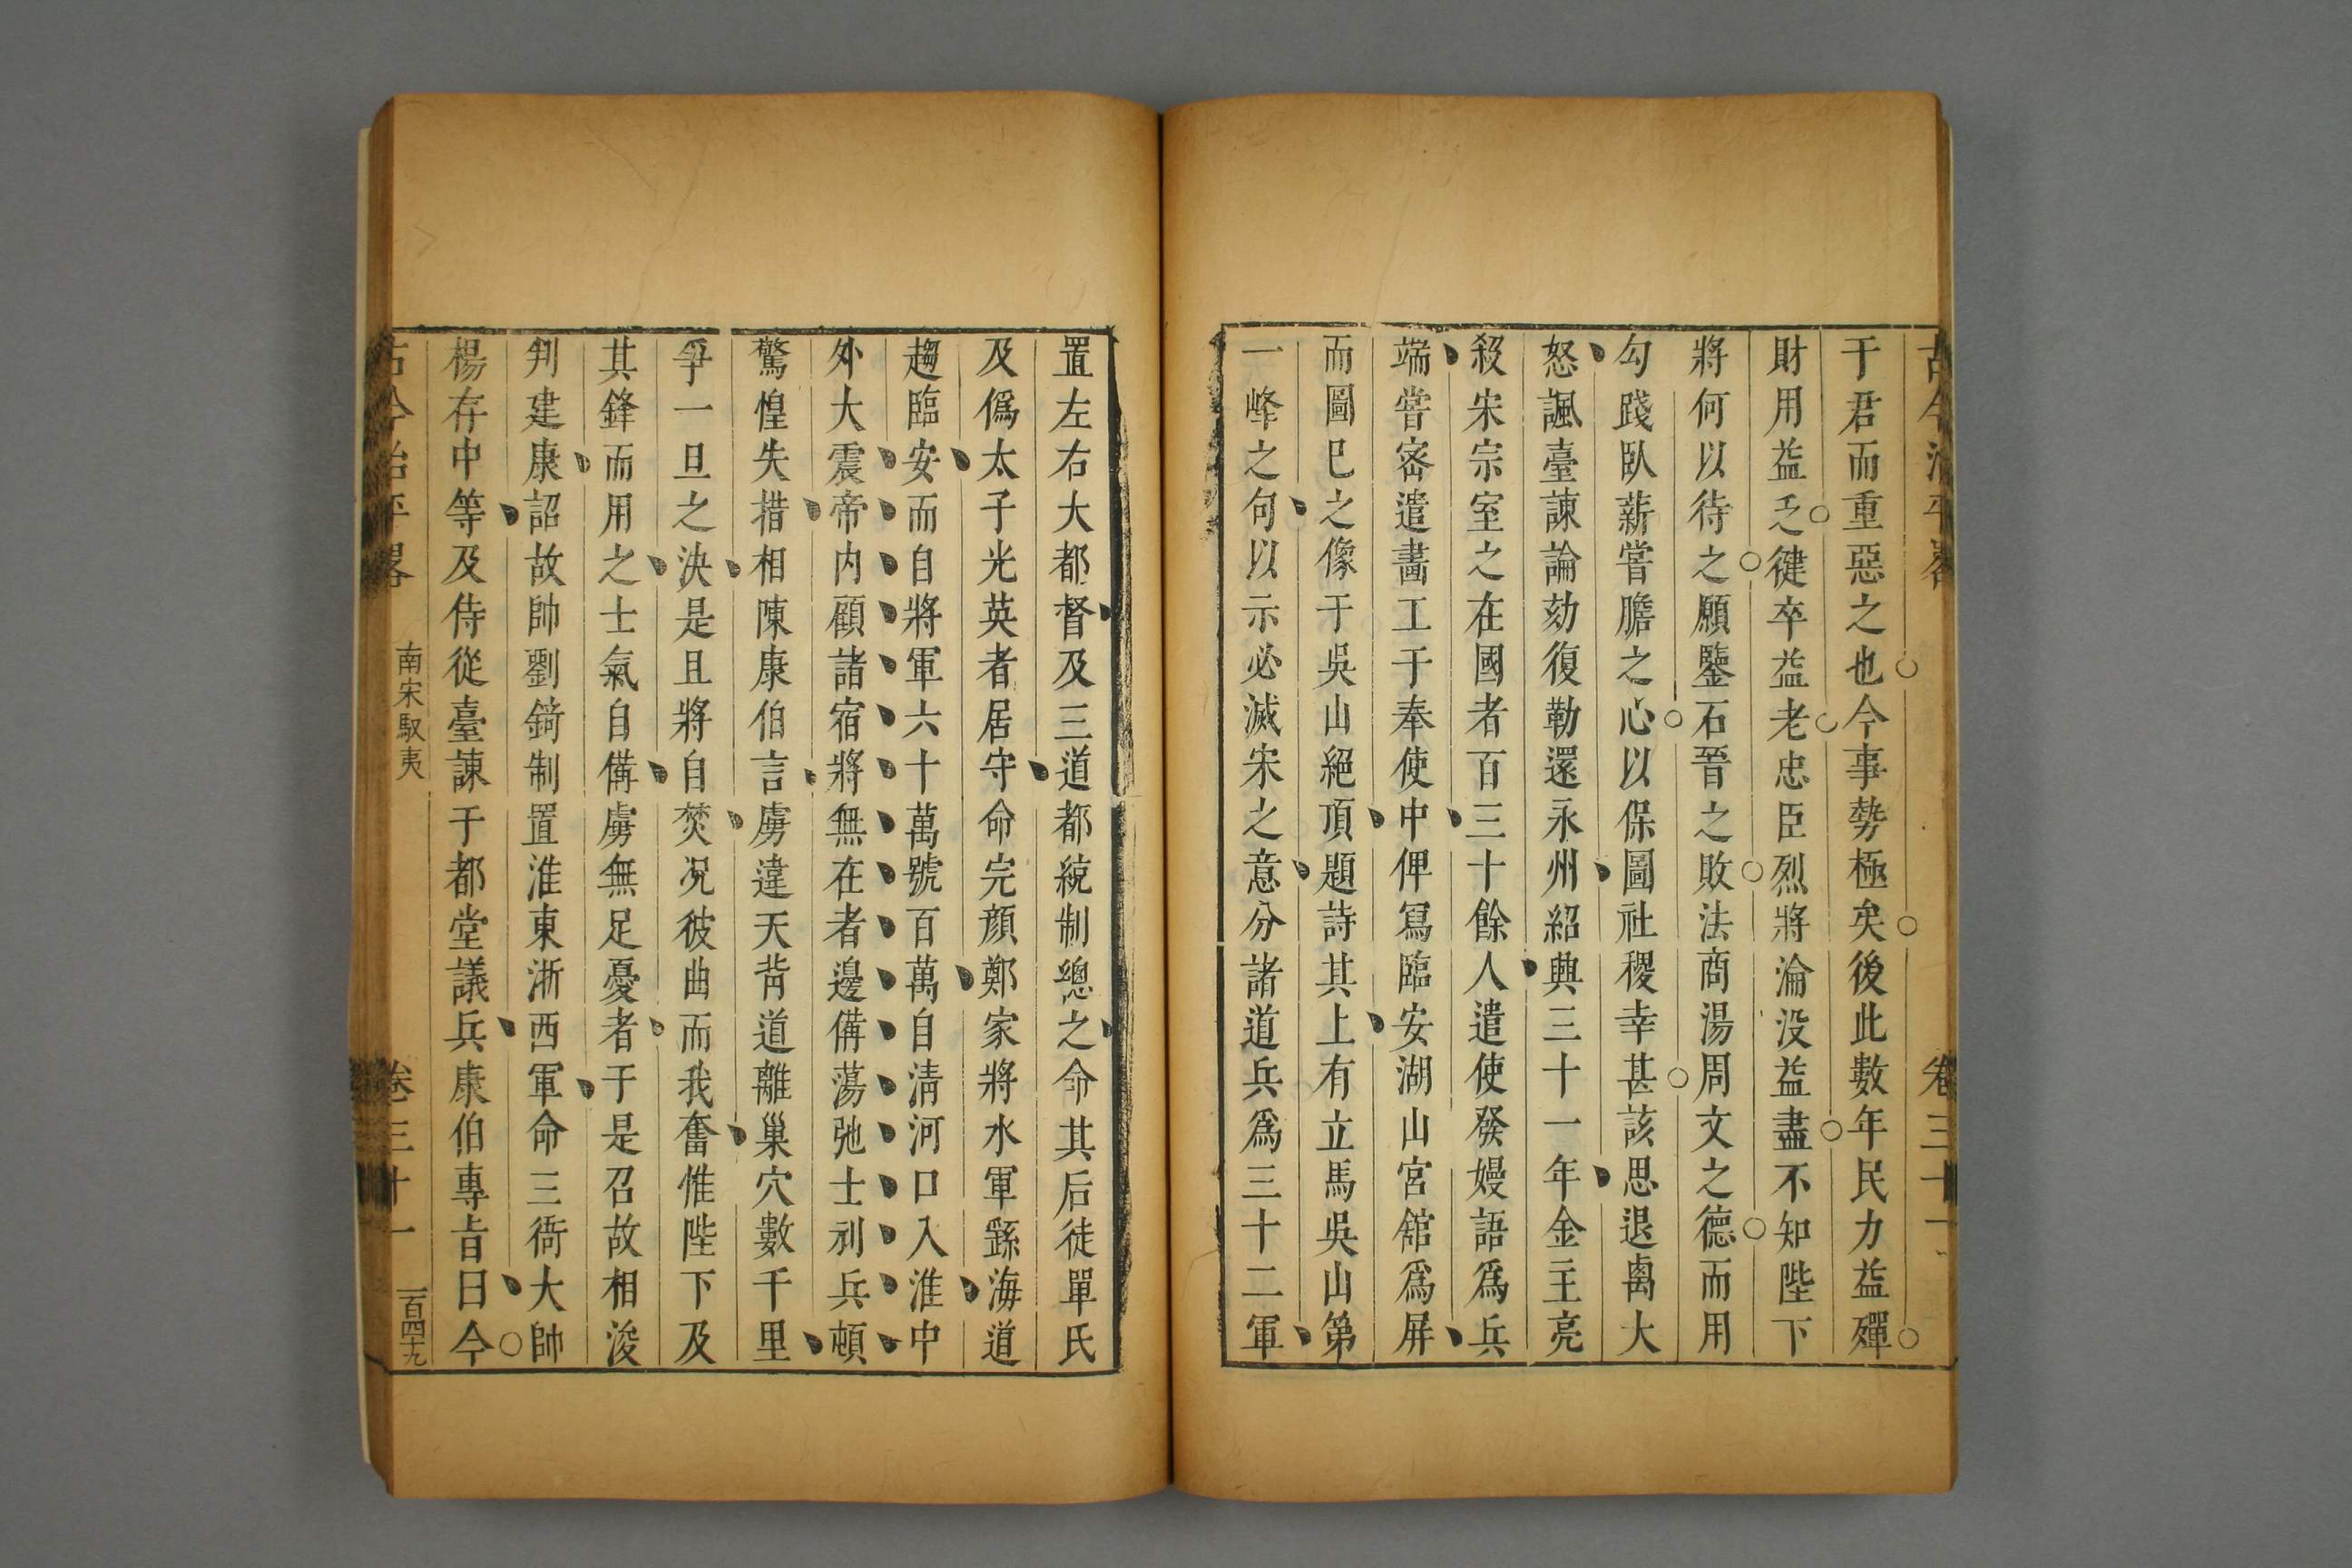 古今治平畧 卷三十一
于君而重惡之也今事勢極矣後此數年民力益殫
財用益乏健卒益老忠臣烈將淪没益盡不知陛下
將何以待之願鑒石晉之敗法商湯周文之德而用
勾踐臥薪嘗膽之心以保圖社稷幸甚該思退禼大
怒諷臺諫論劾復勒還永州紹興三十一年金主亮
殺宋宗室之在國者百三十餘人遣使發嫚語爲兵
端嘗宻遣畵工于奉使中俾冩臨安湖山宮舘爲屏
而圖巳之像于吳山絕頂題詩其上有立馬吳山第
一峰之句以示必滅宋之意分諸道兵爲三十二軍
置左右大都督及三道都統制總之命其后徒單氏
及僞太子光英者居守命完顏鄭家將水軍繇海道
趨臨安而自將軍六十萬號百萬自清河口入淮中
外大震帝内顧諸宿將無在者邊備蕩弛士利兵頓
驚惶失措相陳康伯言虜違天背道離巢穴數千里
爭一旦之決是且將自焚况彼曲而我奮惟陛下及
其鋒而用之士氣自備虜無足憂者于是召故相浚
判建康詔故帥劉錡制置淮東浙西軍命三衙大帥
楊存中等及侍從臺諫于都堂議兵康伯專㫖曰今
古今治平畧 南宋馭夷 卷三十一 一百四十九